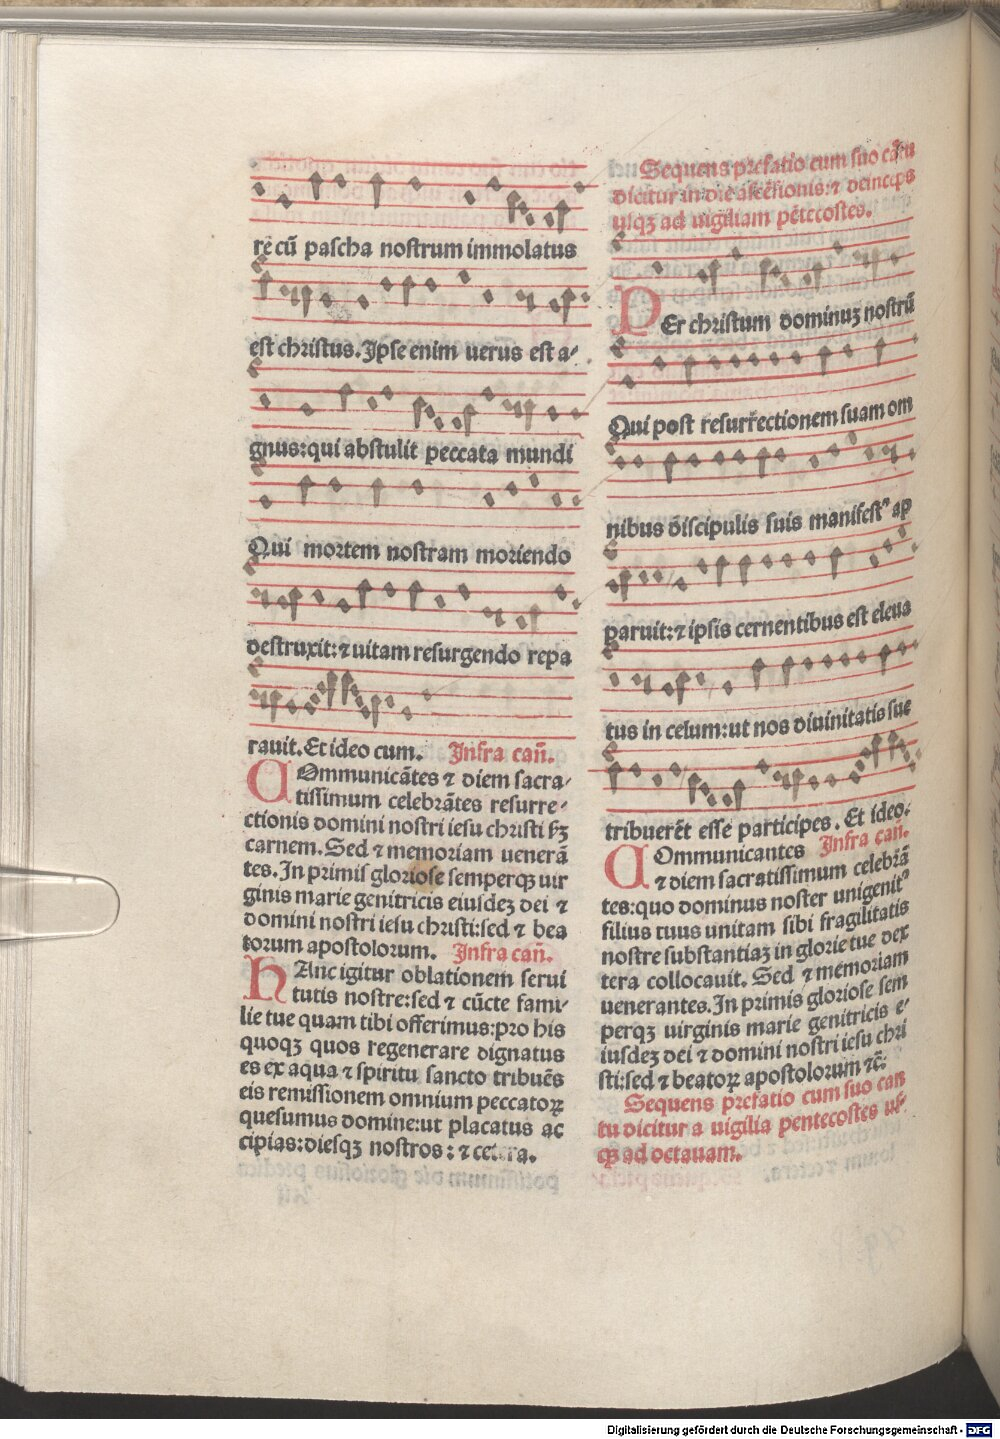 re cū paſcha noſtrum immolatus
eſt chriſtus. Ipſe enim uerus eſt a⸗
gnus: qui abſtulit peccata mundi
Qui mortem noſtram moriendo
deſtruxit: ⁊ uitam reſurgendo repa
rauit. Et ideo cum. Infra cañ.
COmmunicātes ⁊ diem ſacra⸗
tiſſimum celebrātes reſurre⸗
ctionis domini noſtri ieſu chriſti ẜꝫ
carnem. Sed ⁊ memoriam uenerā
tes. In primiſ glorioſe ſemperqꝫ uir
ginis marie genitricis eiuſdeꝫ dei ⁊
domini noſtri ieſu chriſti: ſed ⁊ bea
torum apoſtolorum. Infra cañ.
HAnc igitur oblationem ſerui
tutis noſtre: ſed ⁊ cūcte fami⸗
lie tue quam tibi offerimus: pro his
quoqꝫ quos regenerare dignatus
es ex aqua ⁊ ſpiritu ſancto tribuēs
eis remiſſionem omnium peccatoꝝ
queſumus domine: ut placatus ac
cipias: dieſqꝫ noſtros: ⁊ cetera.
Sequens prefatio cum ſuo cātu
dicitur in die aſcēſionis: ⁊ deinceps
uſqꝫ ad uigiliam pētecoſtes.
PEr chriſtum dominuꝫ noſtrū
Qui poſt reſurrectionem ſuam om
nibus diſcipulis ſuis manifeſtꝰ ap
paruit: ⁊ ipſis cernentibus eſt eleua
tus in celum: ut nos diuinitatis ſue
tribuerēt eſſe participes. Et ideo.
COmmunicantes Infra cañ.
⁊ diem ſacratiſſimum celebrā
tes: quo dominus noſter unigenitꝰ
filius tuus unitam ſibi fragilitatis
noſtre ſubſtantiaꝫ in glorie tue dex
tera collocauit. Sed ⁊ memoriam
uenerantes. In primis glorioſe ſem
perqꝫ uirginis marie genitricis e⸗
iuſdeꝫ dei ⁊ domini noſtri ieſu chri
ſti: ſed ⁊ beatoꝝ apoſtolorum ⁊c̄.
Sequens prefatio cum ſuo can
tu dicitur a uigilia pentecoſtes uſ⸗
qꝫ ad octauam.
Digitalisierung gefördert durch die Deutsche Forschungsgemeinschaft - DFG